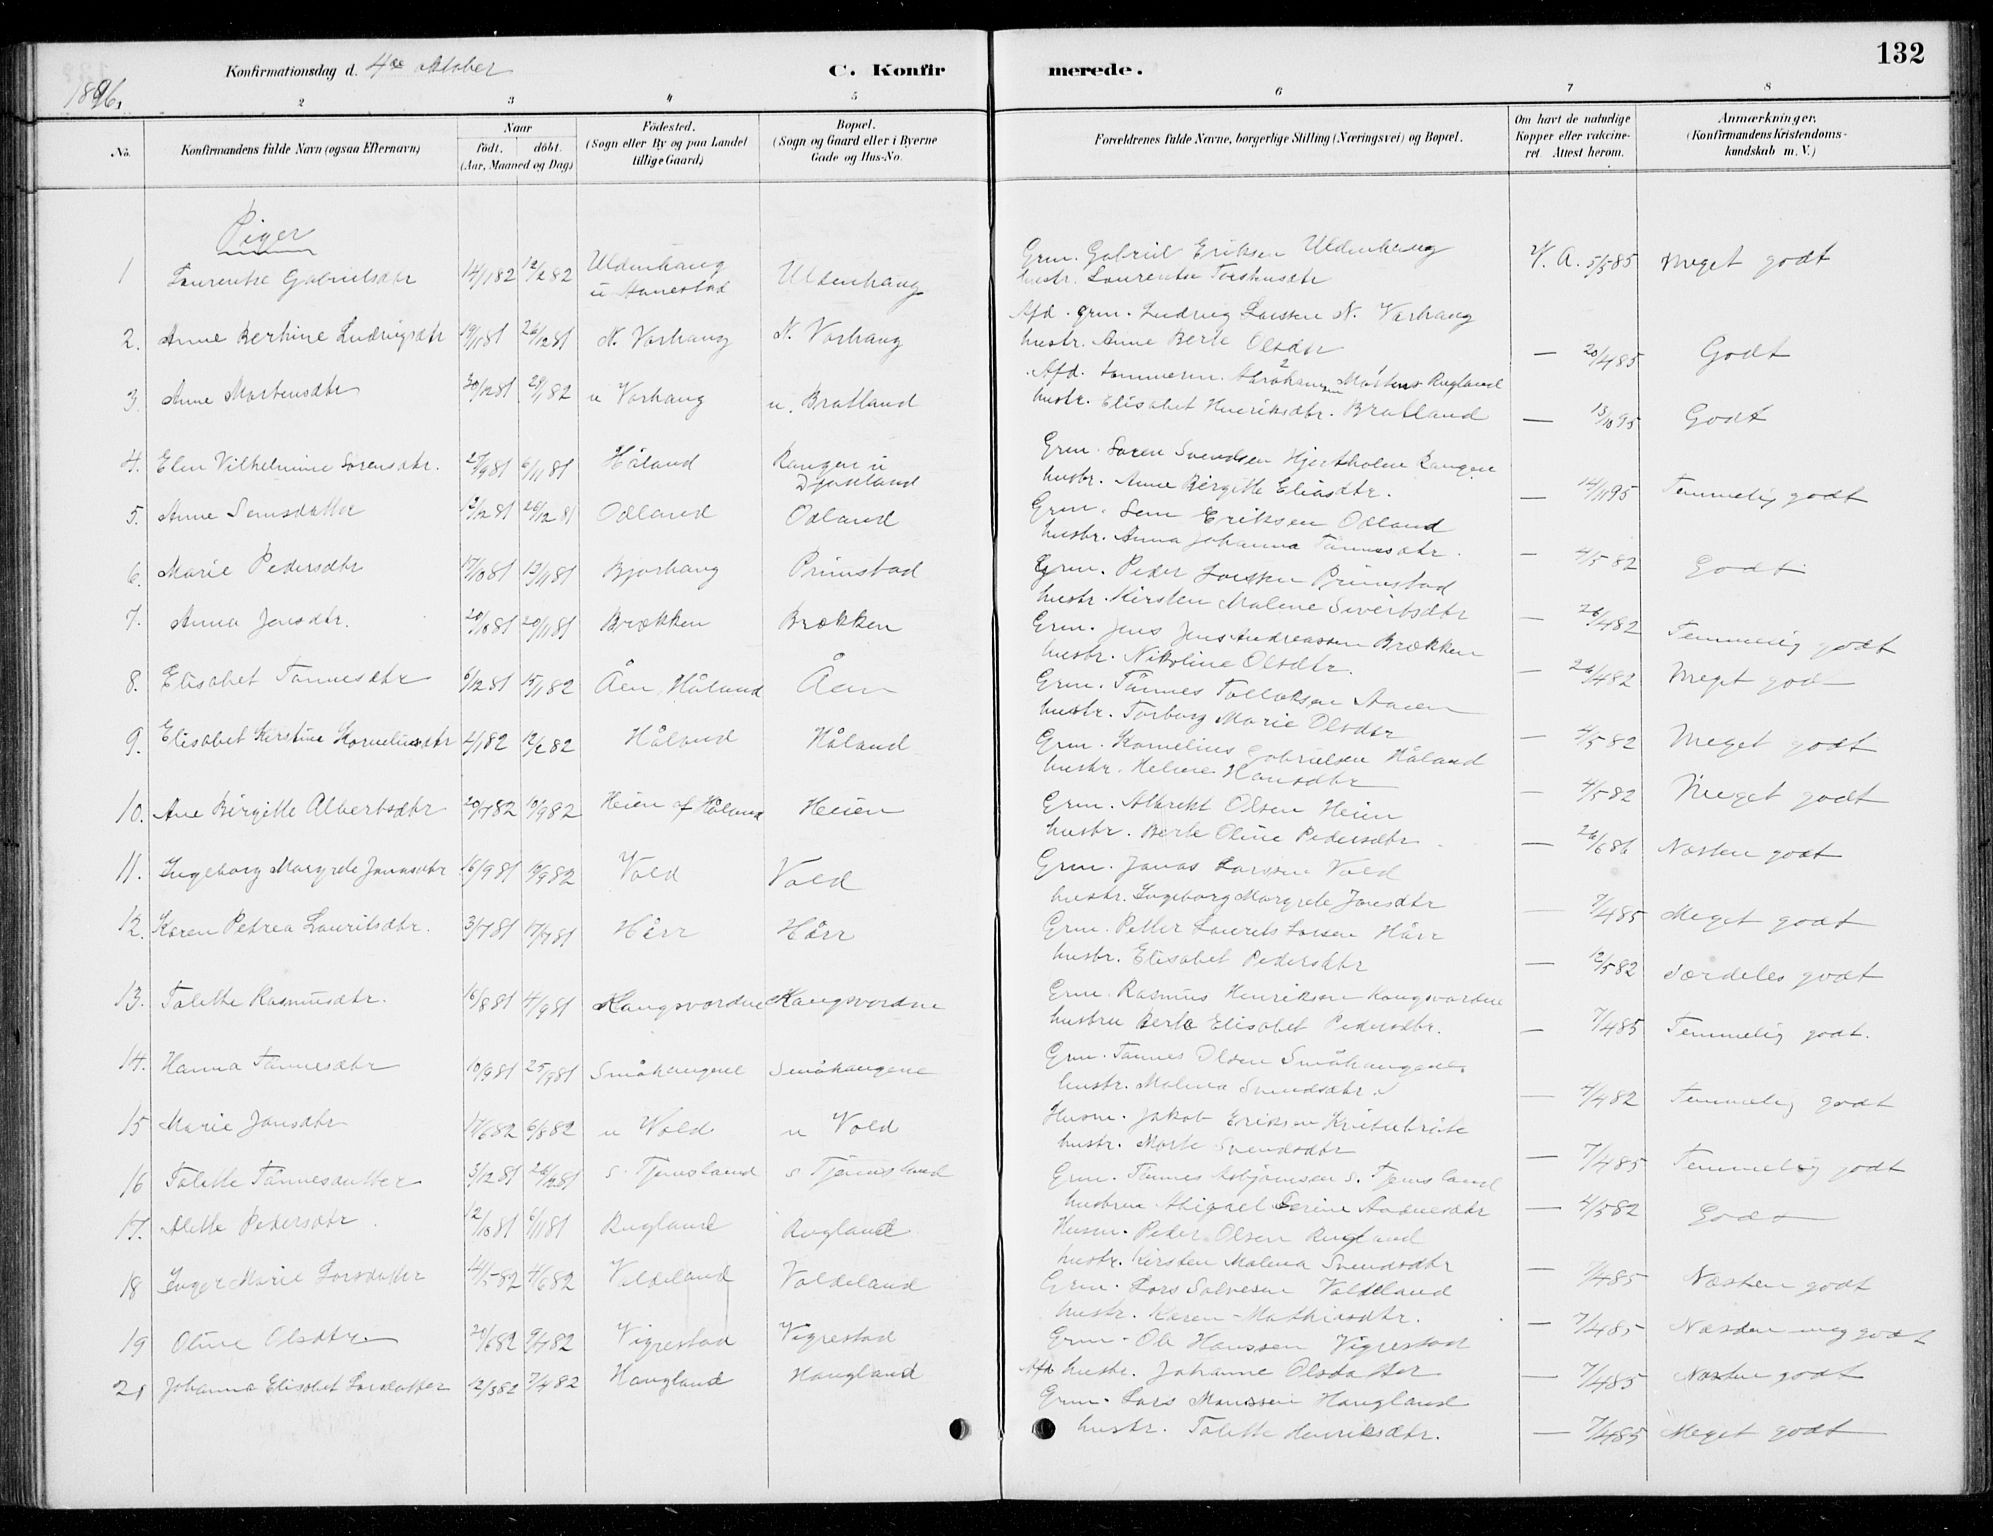 132
Konfirmationsdag d. 4de oktober
C. Konfirmerede.
1896.
2 3 4 5 6 7 8
No. Konfirmandens fulde Navn (ogsaa Efternavn) Naar født. døbt. (Aar, Maaned og Dag) Fødested. (Sogn eller By og paa Landet tillige Gaard) Bopæl. (Sogn og Gaard eller i Byerne Gade og Hus-No. Forældrenes fulde Navne, borgerlige Stilling (Næringsvei) og Bopæl. Om havt de naturlige Kopper eller vakcineret. Attest herom. Anmærkninger. (Konfirmandens Kristendomskundskab m. V.)
Piger
1 Laurentse Gabrielsdtr 14/1 82 12/2 82 Uldenhaug Uldenhaug Grm. Gabriel Eriksen Uldenhaug
hustr. Laurentse V. A. 5/5 85 Meget godt
2. Anne Berthine Ludvigsdtr 19/11 81 26/12 81 N. Varhaug N. Varhaug Afd. grm. Ludvig Larsen N. Varhaug
hustr. Anne Berte Olsdtr — 20/4 85 Godt
3. Anne Mortensdtr 30/12 81 29/1 82 u Varhaug u. Bratland Afd. tømmerm. Abraham Mortens Rugland
hustr. Elisabet Henriksdtr. Bratland — 13/10 95 Godt
4. Elen Vilhelmine Sørensdtr. 27/9 81 6/11 81 Håland Rangen u Grm. Søren Svendsen Hjertholm Rangen
hustr. Anne Birgitte Eliasdtr. — 14/11 95 Temmelig godt
5. Anne Semsdatter 12/12 81 26/12 81 Odland Odland Grm. Sem Eriksen Odland
hustr. Anna Johanna Tønnesdtr. — 4/5 82 Godt
6. Marie Pedersdtr 17/10 81 13/11 81 Bjorhaug Primstad Grm. Peder Larsen Primstad
hustr. Kirsten Malene Sivertsdtr — 26/4 82 Temmelig godt
7. Anna Jensdtr. 20/10 81 20/11 81 Brækken Brækken Grm. Jens Jens Andreassen Brækken
hustr. Nikoline Olsdtr. — 26/4 82 Meget godt
8. Elisabet Tønnesdtr 6/12 81 15/1 82 Åen, Håland Åen Grm. Tønnes Tollaksen Aaen
hustr. Torborg Marie Olsdtr — 4/5 82 Meget godt
9. Elisabet Kirstine Korneliusdtr 4/1 82 12/2 82 Håland Håland Grm. Kornelius Gabrielsen Håland
hustr. Helene Hansdtr — 4/5 82 Meget godt
10. Ane Birgitte Albertsdtr 20/7 82 10/9 82 Heien af Håland Heien Grm. Albrekt Olsen Heien
hustr. Berte Oline Pedersdtr — 26/6 86 Næsten godt
11. Ingeborg Margrete Jonasdtr 16/9 81 Vold Vold Grm. Jonas Larsen Vold
hustr. Ingeborg Margrete Jonsdtr — 7/4 85 Meget godt
12. Karen Petrea Lauritsdtr. 3/7 81 17/7 81 Hårr Hårr Grm. Petter Laurits Larsen Hårr
hustr. Elisabet Pedersdtr — 12/5 82 Særdeles godt
13. Talette Rasmusdtr. 16/8 81 4/9 81 Kongsvardne Kongsvardne Grm. Rasmus Henriksen Kongsvardne
hustru Berte Elisabet Pedersdtr. — 7/4 85 Temmelig godt.
14. Hanna Tønnesdtr 10/9 81 25/9 81 Småhaugene Småhaugene Grm. Tønnes Olsen Småhaugene
hustr. Malena Svendsdtr. — 4/4 82 Temmelig godt
15 Marie Jonsdtr 17/6 82 6/8 82 u Vold u Vold Husm. Jakob Eriksen
hustr. Marte Svendsdtr — 7/4 85 Temmelig godt
16 Talette Tønnesdatter 3/12 81 26/12 81 s. Tjemsland s Tjemsland Grm. Tønnes Asbjørnsen s. Tjemsland
hustru Abigael Serine — 4/5 82 Godt
17. Alette Pedersdtr 12/10 81 6/11 81 Rugland Rugland Husm. Peder Olsen Rugland
hustr. Kirsten Malena Svendsdtr — 7/4 85 Næsten godt
18 Inger Marie Larsdatter 14/5 82 4/6 82 Voldeland Voldeland Grm. Lars Salvesen Voldeland
hustr. Karen Mathiasdtr. — 7/4 85 Næsten meg godt
19 Oline Olsdtr. 20/6 82 9/7 82 Vigrestad Vigrestad Grm. Ole Hanssen Vigrestad
Afd. hustr. Johanne Olsdatter — 7/4 85 Næsten godt
20 Johanna Elisabet Larsdatter 12/3 82 7/4 82 Haugland Haugland Grm. Lars Monssen Haugland
hustr. Talette Henriksdtr. — 7/4 85 Meget godt